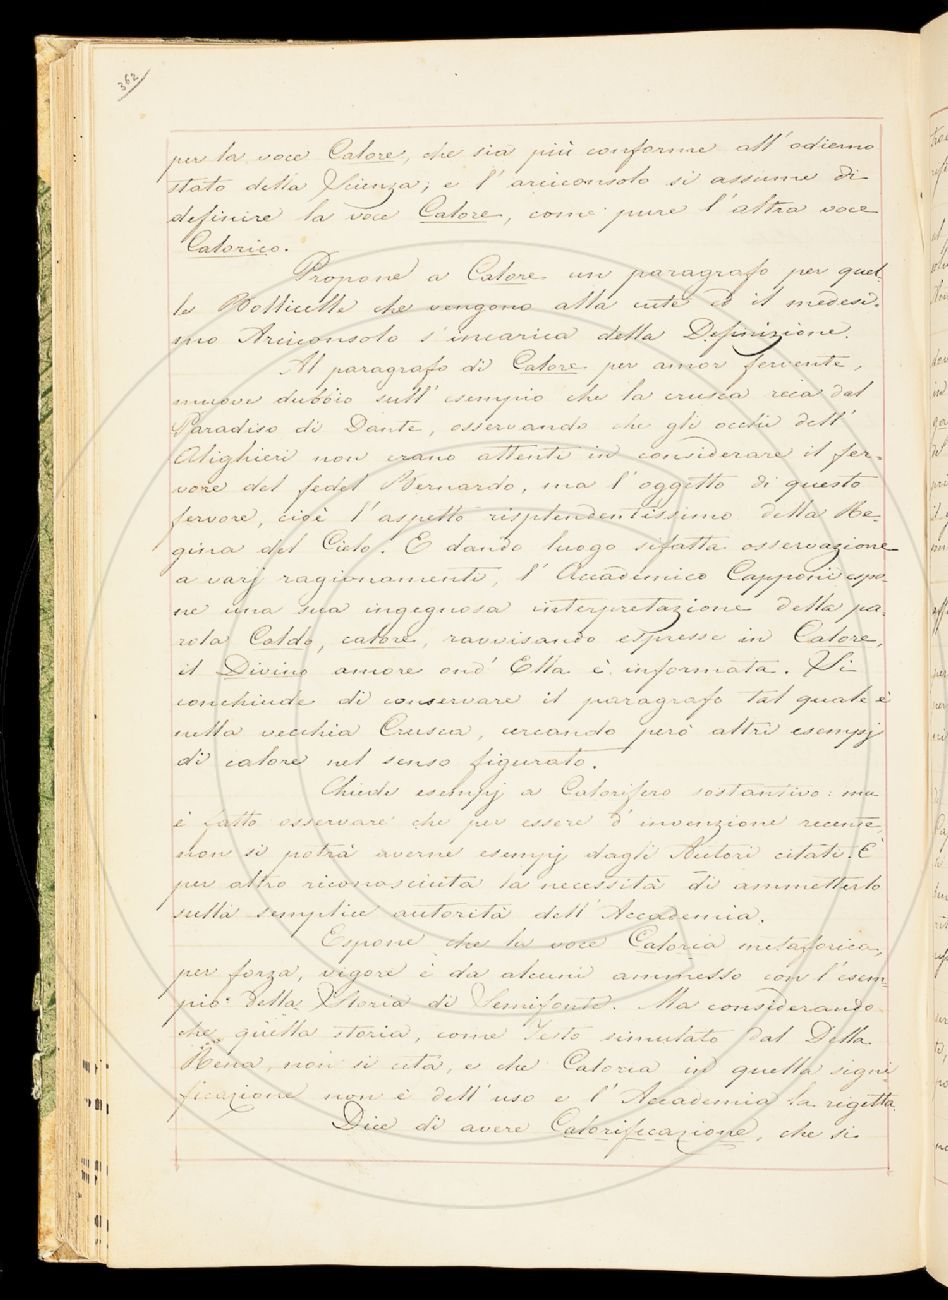 362
per la voce Calore, che sia più conforme all'odierno
stato della Scienza; e l'arciconsolo si assume di
definire la voce Calore, come pure l'altra voce
Calorico.
Propone a Calore un paragrafo per quel-
le Bollicelle che vengono alla cute ed il medesi-
mo Arciconsolo s'incarica della Definizione.
Al paragrafo di Calore per amor fervente,
muove dubbio sull'esempio che la crusca reca dal
Paradiso di Dante, osservando che gli occhi dell'
Alighieri non erano attenti in considerare il fer-
vore del fedel Bernardo, ma l'oggetto di questo
fervore, cioè l'aspetto risplendentissimo della Re-
gina del Cielo. E dando luogo sifatta osservazione
a varj ragionamenti, l'Accademico Capponi espo-
ne una sua ingegnosa interpretazione della pa-
rola Caldo, calore, ravvisando espresse in Calore,
il Divino amore ond'Ella è informata. Si
conchiude di conservare il paragrafo tal quale è
nella vecchia Crusca, cercando però altri esempj
di calore nel senso figurato.
Chiede esempj a Calorifero sostantivo: ma
è fatto osservare che per essere d'invenzione recente,
non si potrà averne esempj dagli Autori citati. È
per altro riconosciuta la necessità di ammetterlo
sulla semplice autorità dell'Accademia.
Espone che la voce Caloria metaforica,
per forza, vigore è da alcuni ammesso con l'esem-
pio della Storia di Semifonte. Ma considerando
che quella storia, come Testo simulato dal Della
Rena, non si cita, e che Caloria in quella signi-
ficazione non è dell'uso e l'Accademia la rigetta.
Dice di avere Calorificazione, che si